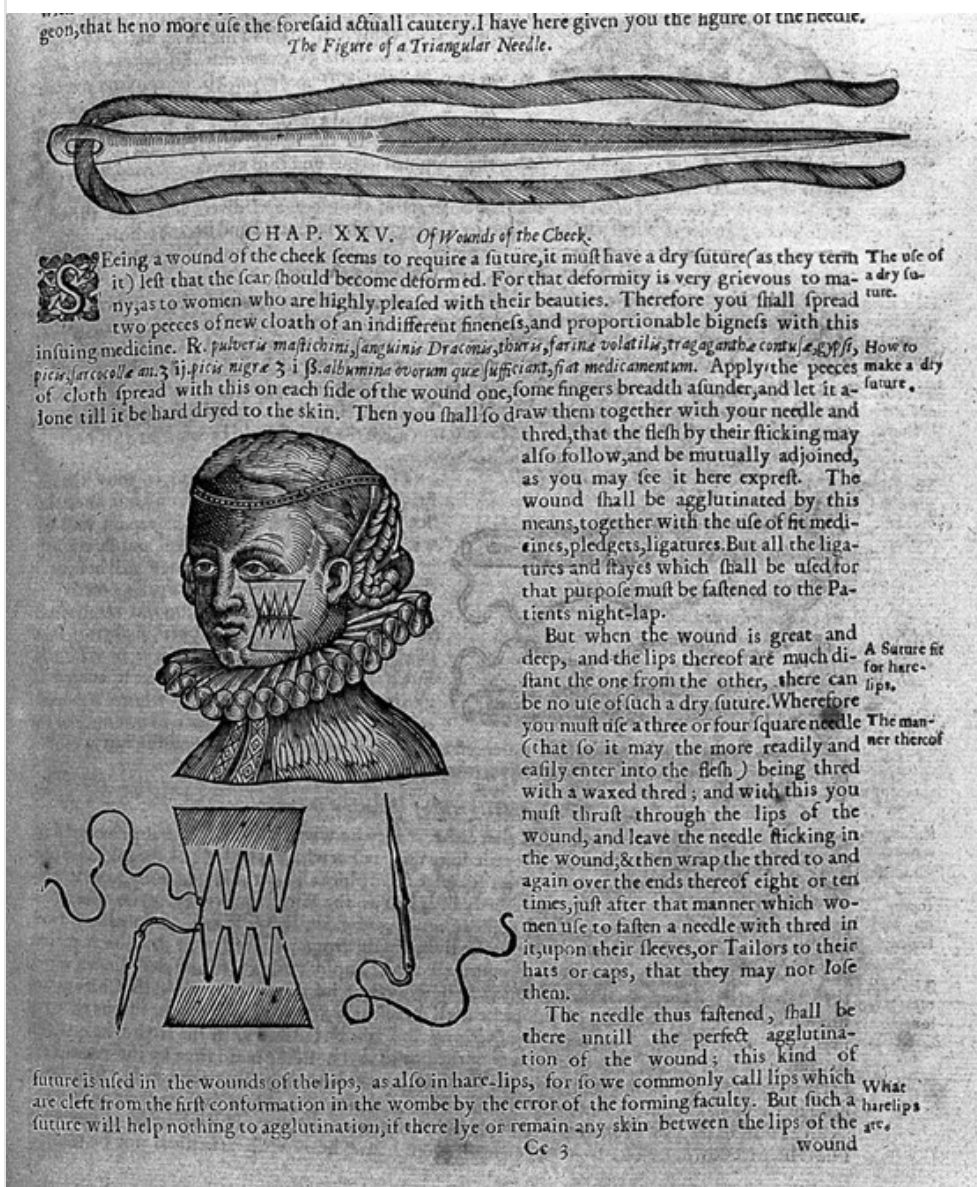 geon,that he no more uſe the foreſaid actuall cautery.I have here given you the figure of the needle.
The Figure of a Triangular Needle.
CHAP. XXV. Of Wounds of the Cheek.
SEeing a wound of the cheek ſeems to require a ſuture,it muſt have a dry ſuture(as they term
it) leſt that the ſcar ſhould become deformed. For that deformity is very grievous to ma-
ny,as to women who are highly pleaſed with their beauties. Therefore you ſhall ſpread
two peeces of new cloath of an indifferent fineneſs,and proportionable bigneſs with this
inſuing medicine. ℞. pulveris maſtichini,ſanguinis Draconis,thuris,farinæ volatilis,tragaganthæ contuſæ,gypſi,
picis,ſarcocollæ an.ʒ ij.picis nigræ ʒ i ß.albumina ovorum quæ ſufficiant,fiat medicamentum. Apply the peeces
of cloth ſpread with this on each ſide of the wound one,ſome fingers breadth aſunder,and let it a-
lone till it be hard dryed to the skin. Then you ſhall ſo draw them together with your needle and
thred,that the fleſh by their ſticking may
alſo follow,and be mutually adjoined,
as you may ſee it here expreſt. The
wound ſhall be agglutinated by this
means,together with the uſe of fit medi-
cines,pledgets,ligatures.But all the liga-
tures and ſtayes which ſhall be uſed for
that purpoſe muſt be faſtened to the Pa-
tients night-lap.
But when the wound is great and
deep, and the lips thereof are much di-
ſtant the one from the other, there can
be no uſe of ſuch a dry ſuture.Wherefore
you muſt uſe a three or four ſquare needle
(that ſo it may the more readily and
eaſily enter into the fleſh) being thred
with a waxed thred; and with this you
muſt thruſt through the lips of the
wound, and leave the needle ſticking in
the wound;&then wrap the thred to and
again over the ends thereof eight or ten
times,juſt after that manner which wo-
men uſe to faſten a needle with thred in
it,upon their ſleeves,or Tailors to their
hats or caps, that they may not loſe
them.
The needle thus faſtened, ſhall be
there untill the perfect agglutina-
tion of the wound; this kind of
ſuture is uſed in the wounds of the lips, as alſo in hare-lips, for ſo we commonly call lips which
are cleft from the firſt conformation in the wombe by the error of the forming faculty. But ſuch a
ſuture will help nothing to agglutination,if there lye or remain any skin between the lips of the
Cc 3
wound
The uſe of
a dry ſu-
ture.
How to
make a dry
ſuture.
A Suture fit
for hare-
lips.
The man-
ner thereof
What
harelips
are.